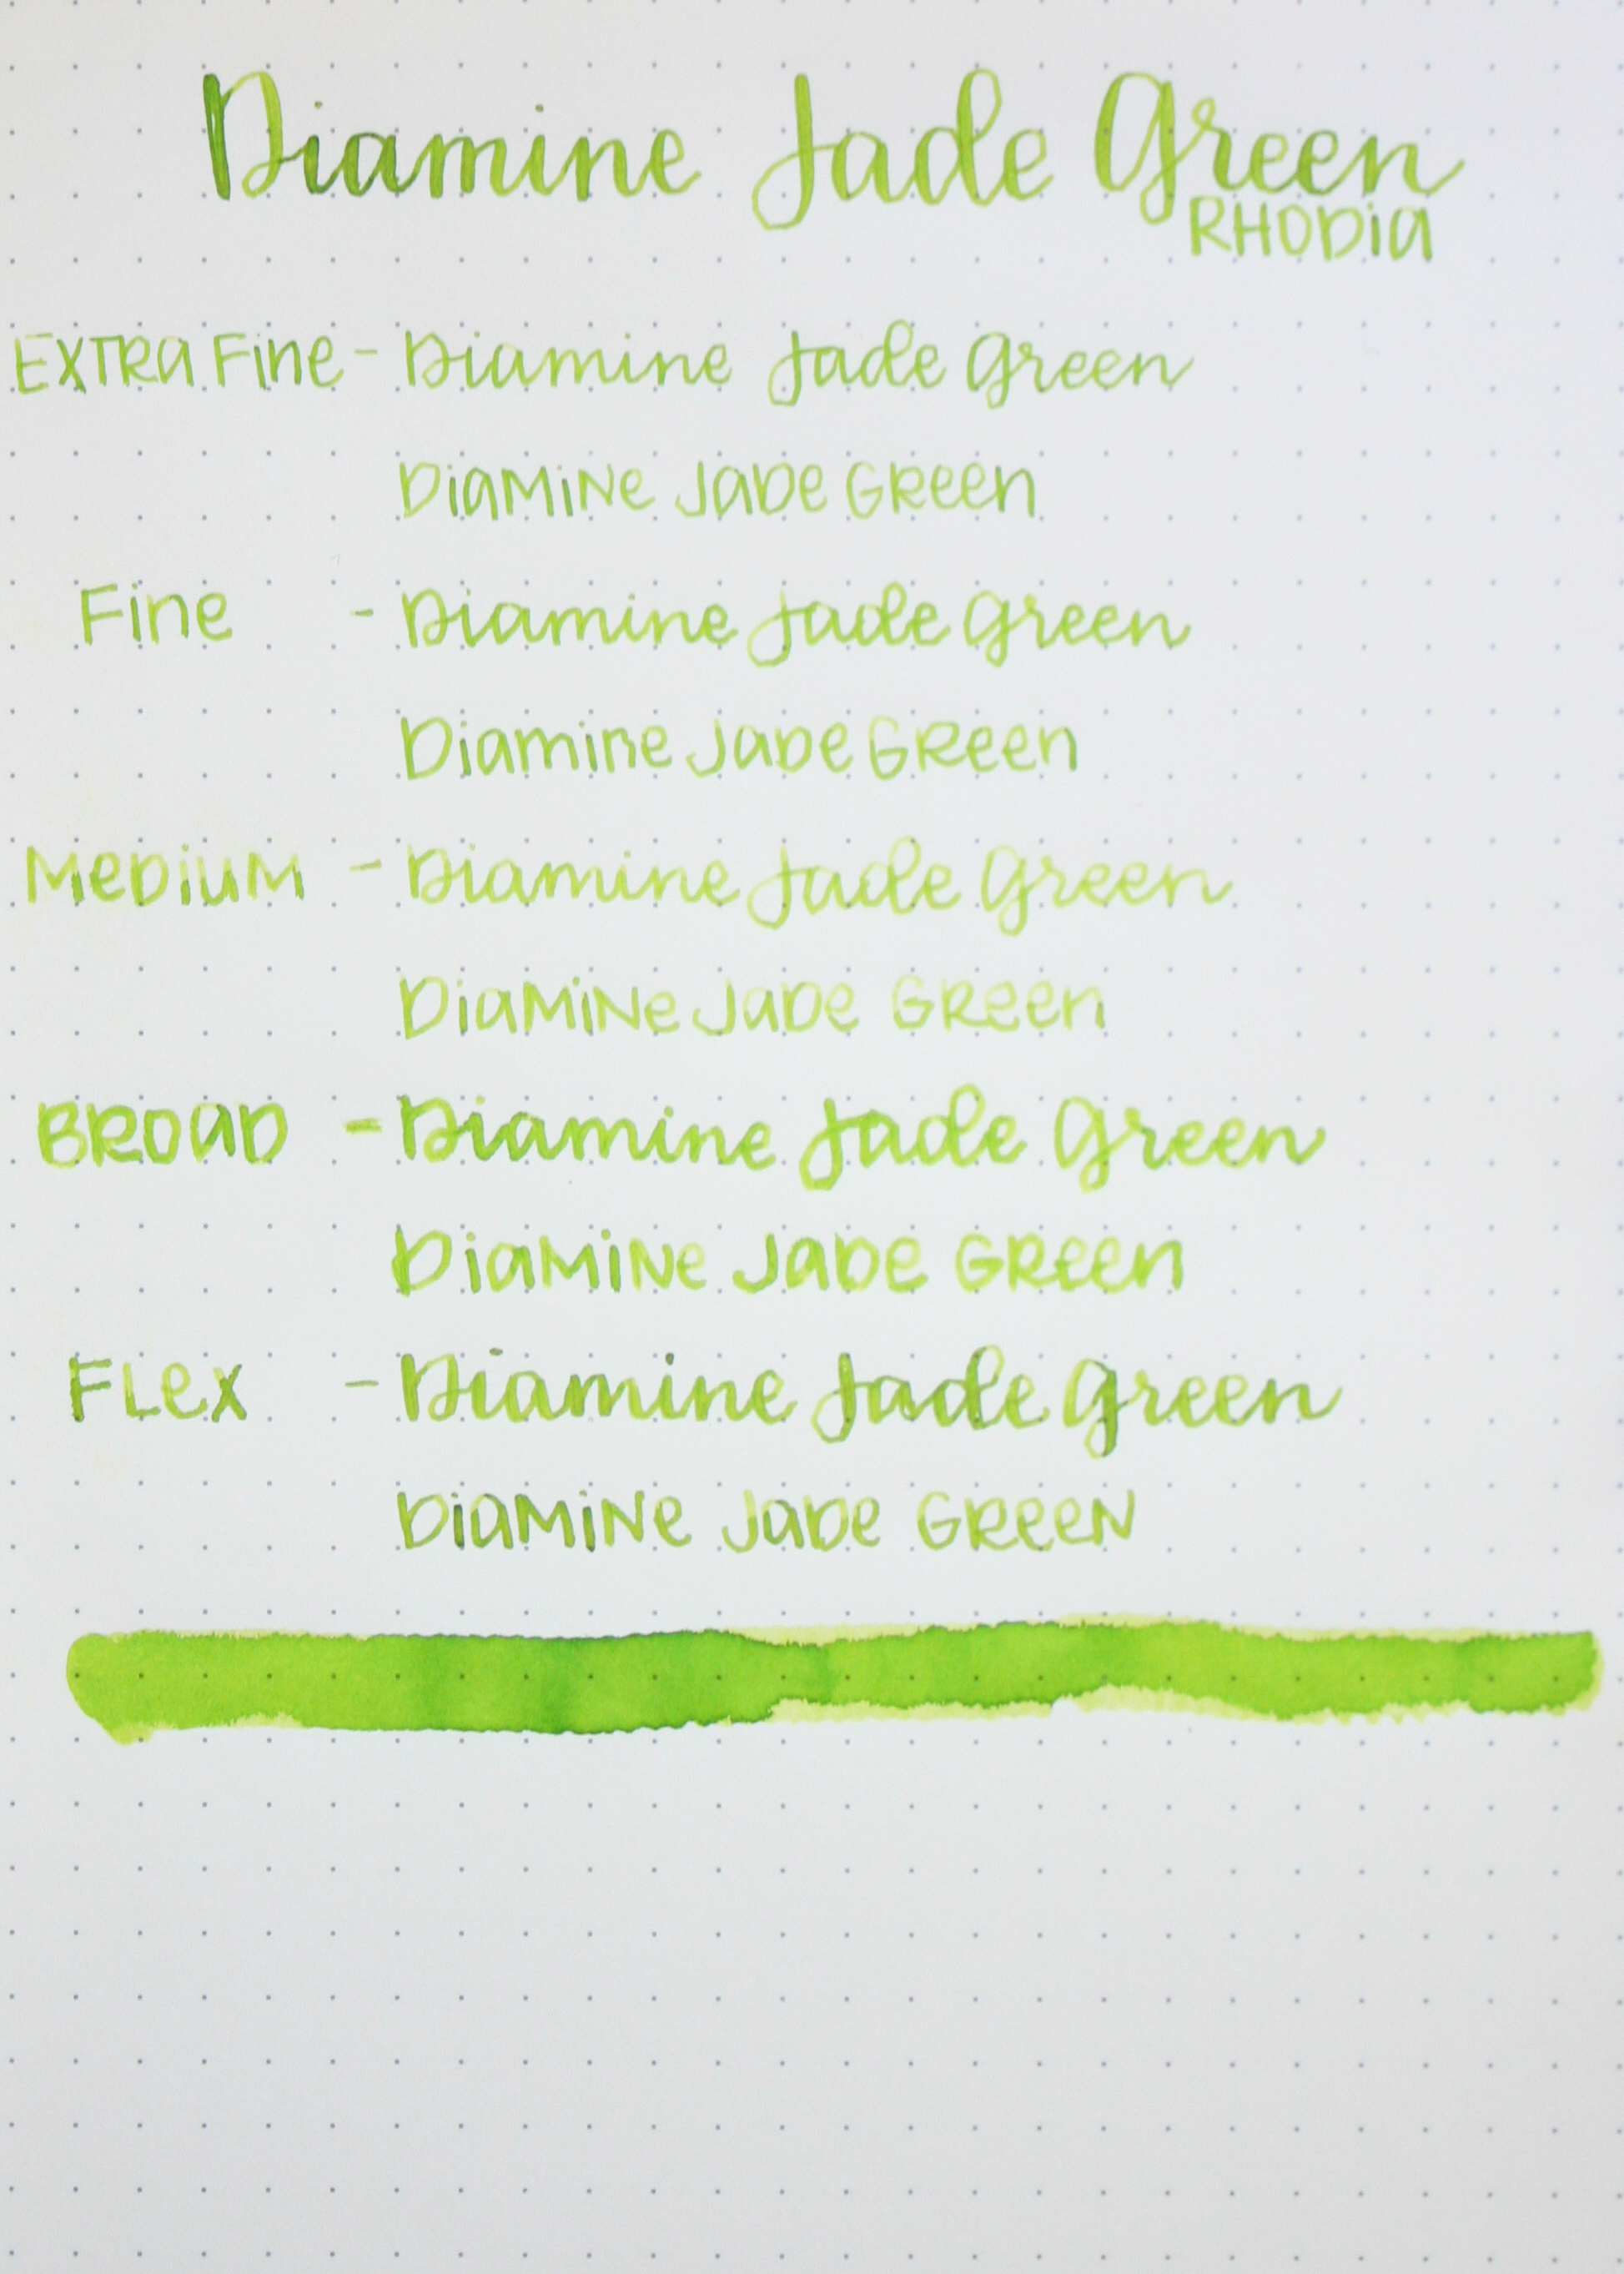 Diamine Jade Green
RHODiA
EXTRA Fine - Diamine Jade Green
DiAMiNe JADe GReen
Fine - Diamine Jade Green
Diamine JADe GReen
MeDiuM - Diamine Jade Green
DiAMiNe JADe GReen
BROAD - Diamine Jade Green
DiAMiNe JADe GReen
FLex - Diamine Jade Green
DiAMiNe JADe GReeN